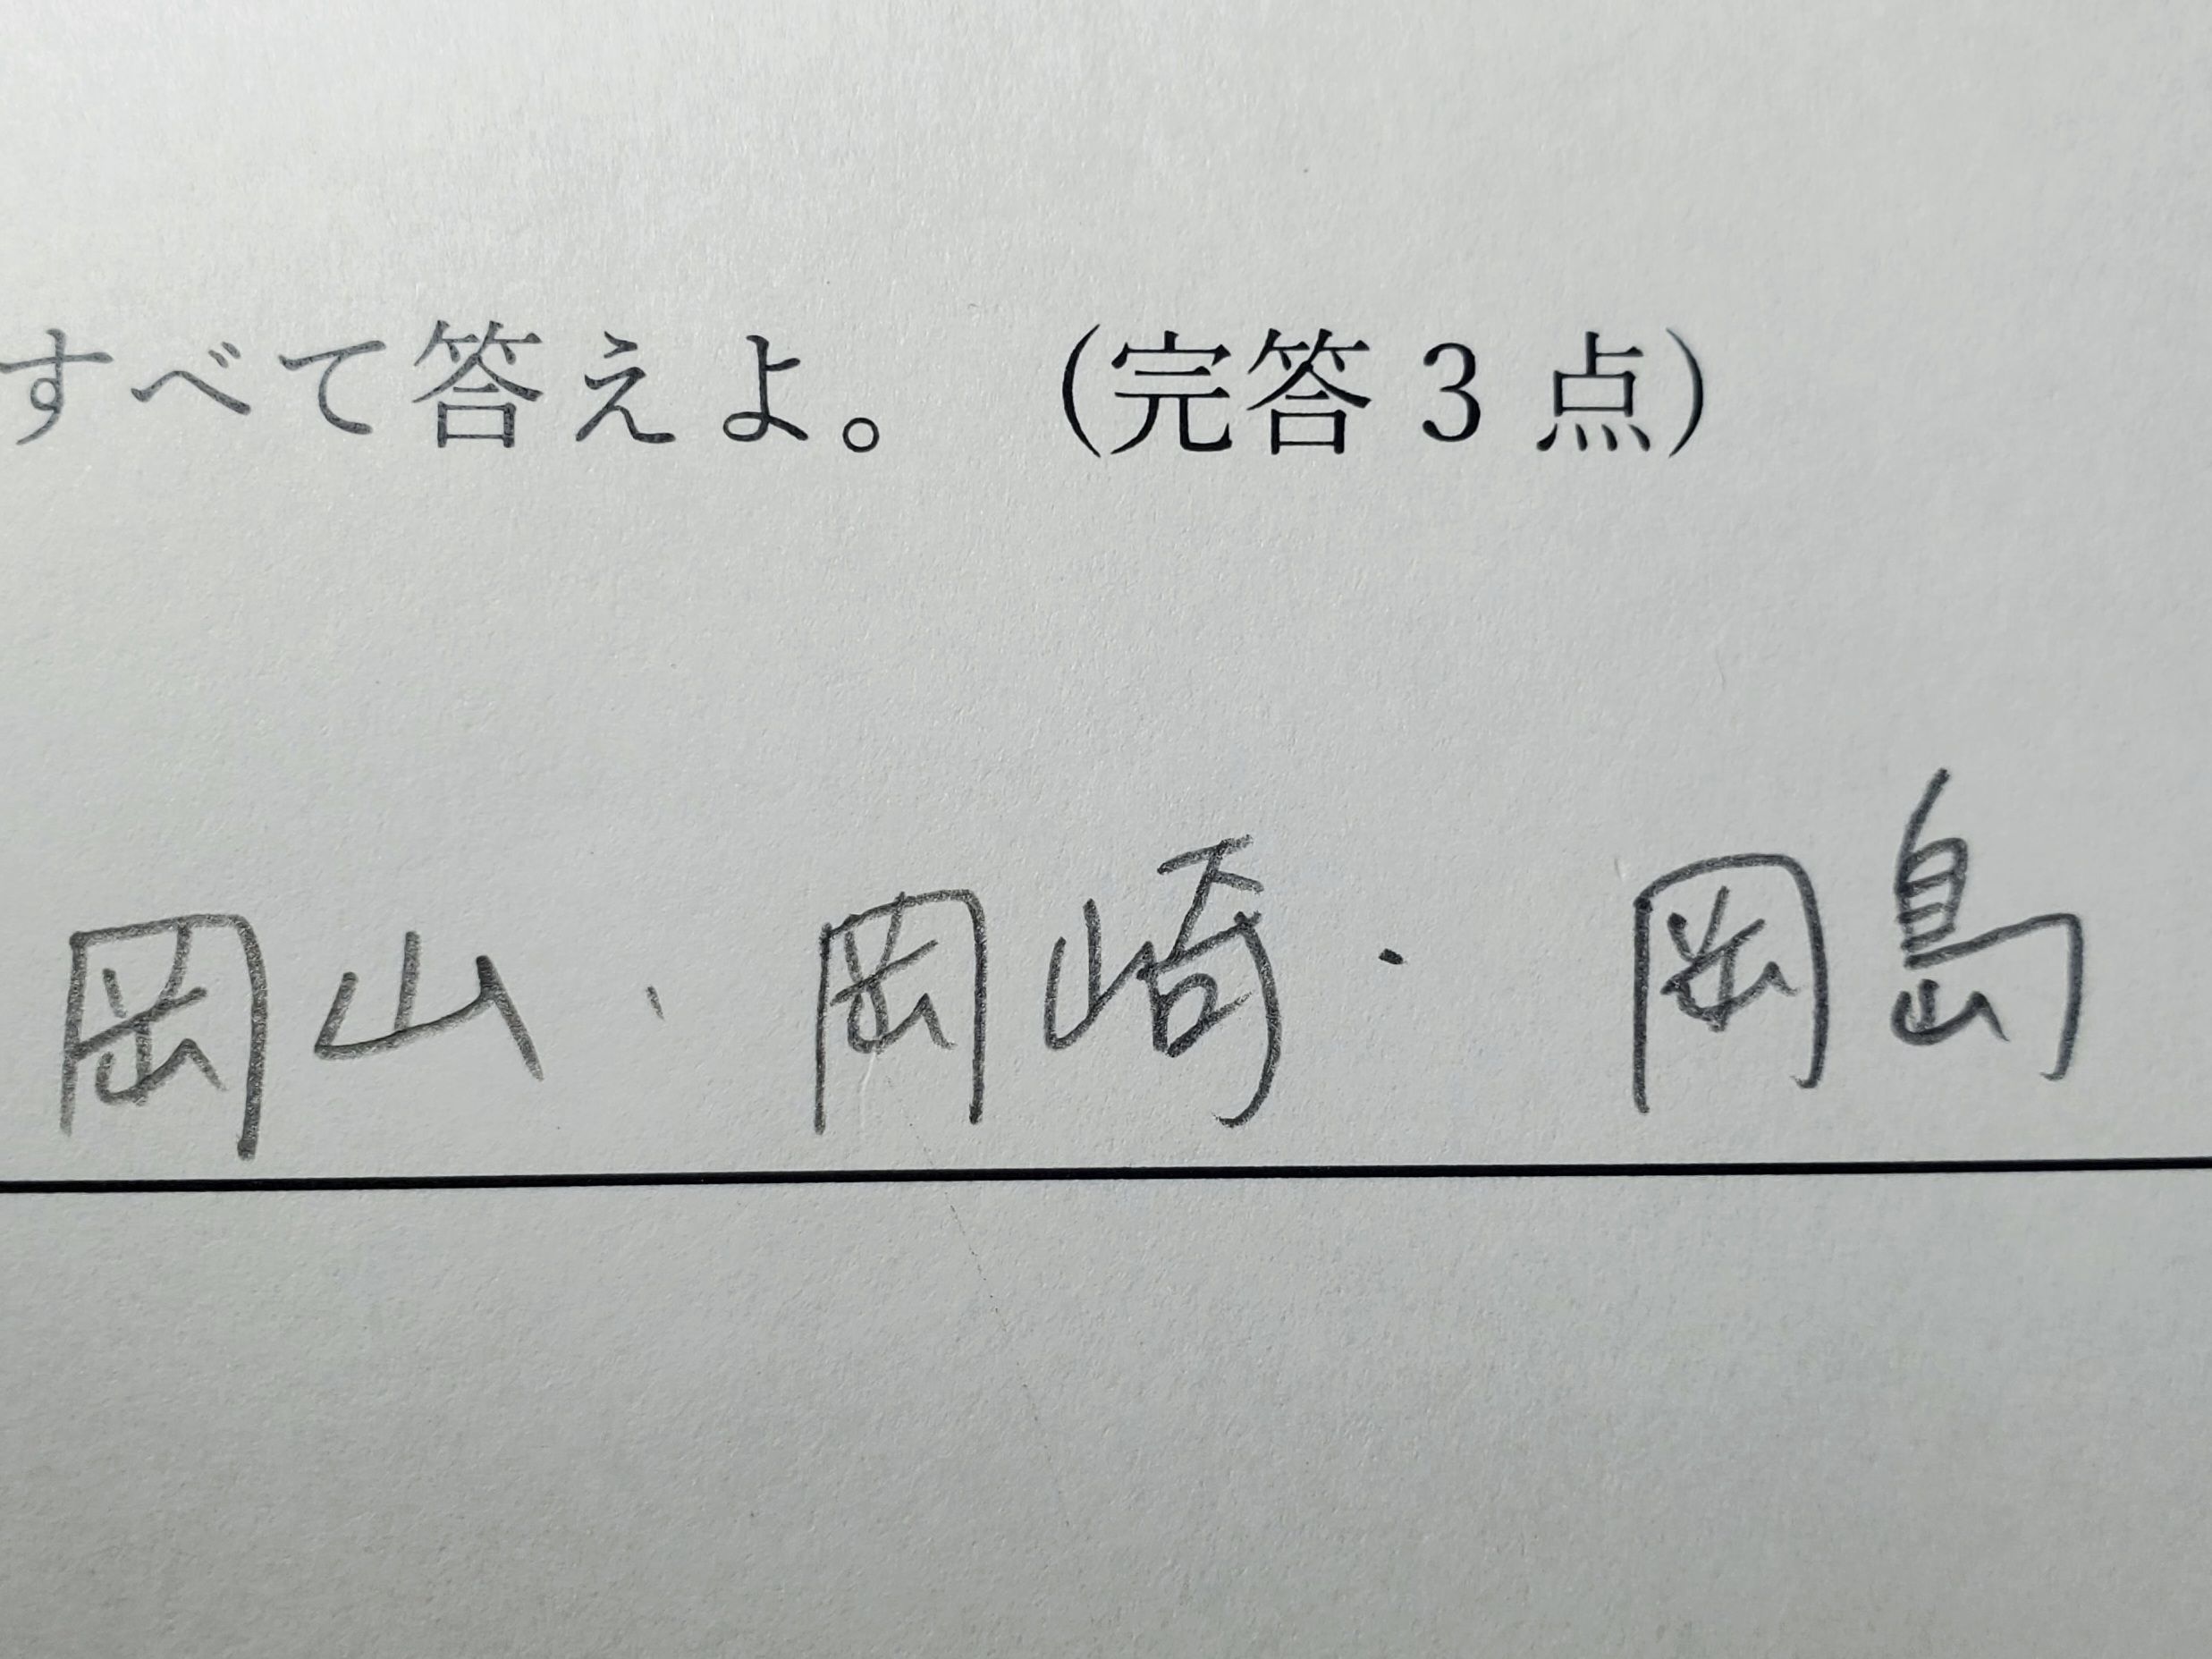 すべて答えよ。 (完答3点)
岡山・岡崎・岡島